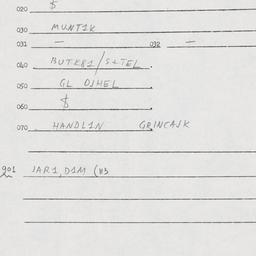 020 $
030 MUNT1K
031 — 032 —
040 BUTK81/S+TEL.
050 GL OJHEL.
060 $.
070 HANDL1N GRINCAJK
901 JAR1, D1M (